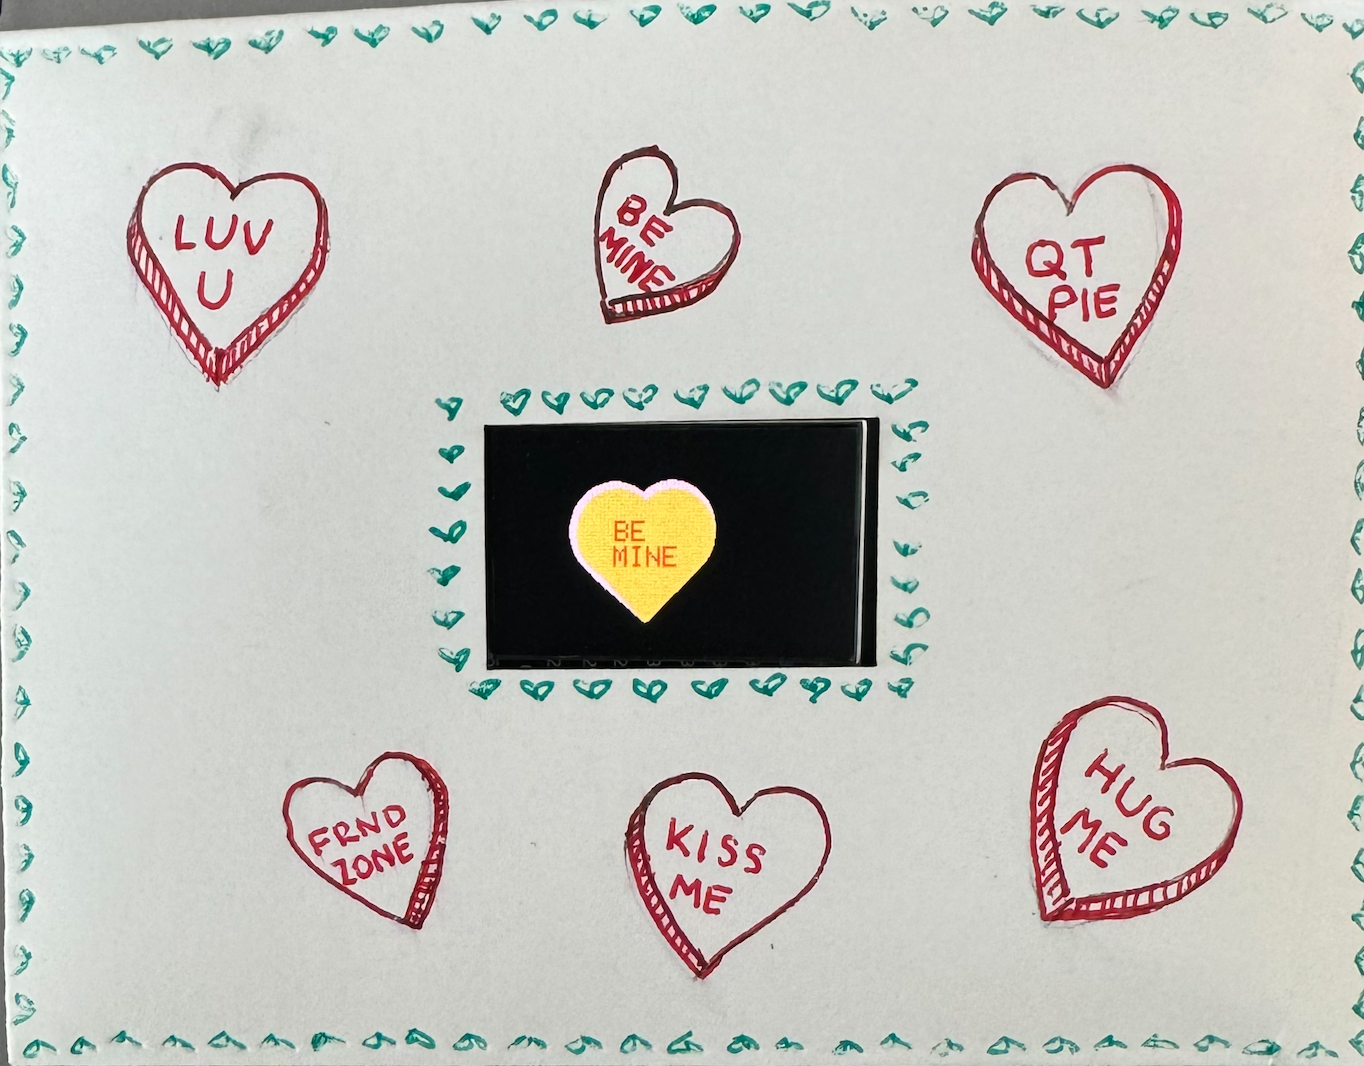 LUV
U
BE
MINE
QT
PIE
BE
MINE
FRND
ZONE
KISS
ME
HUG
ME